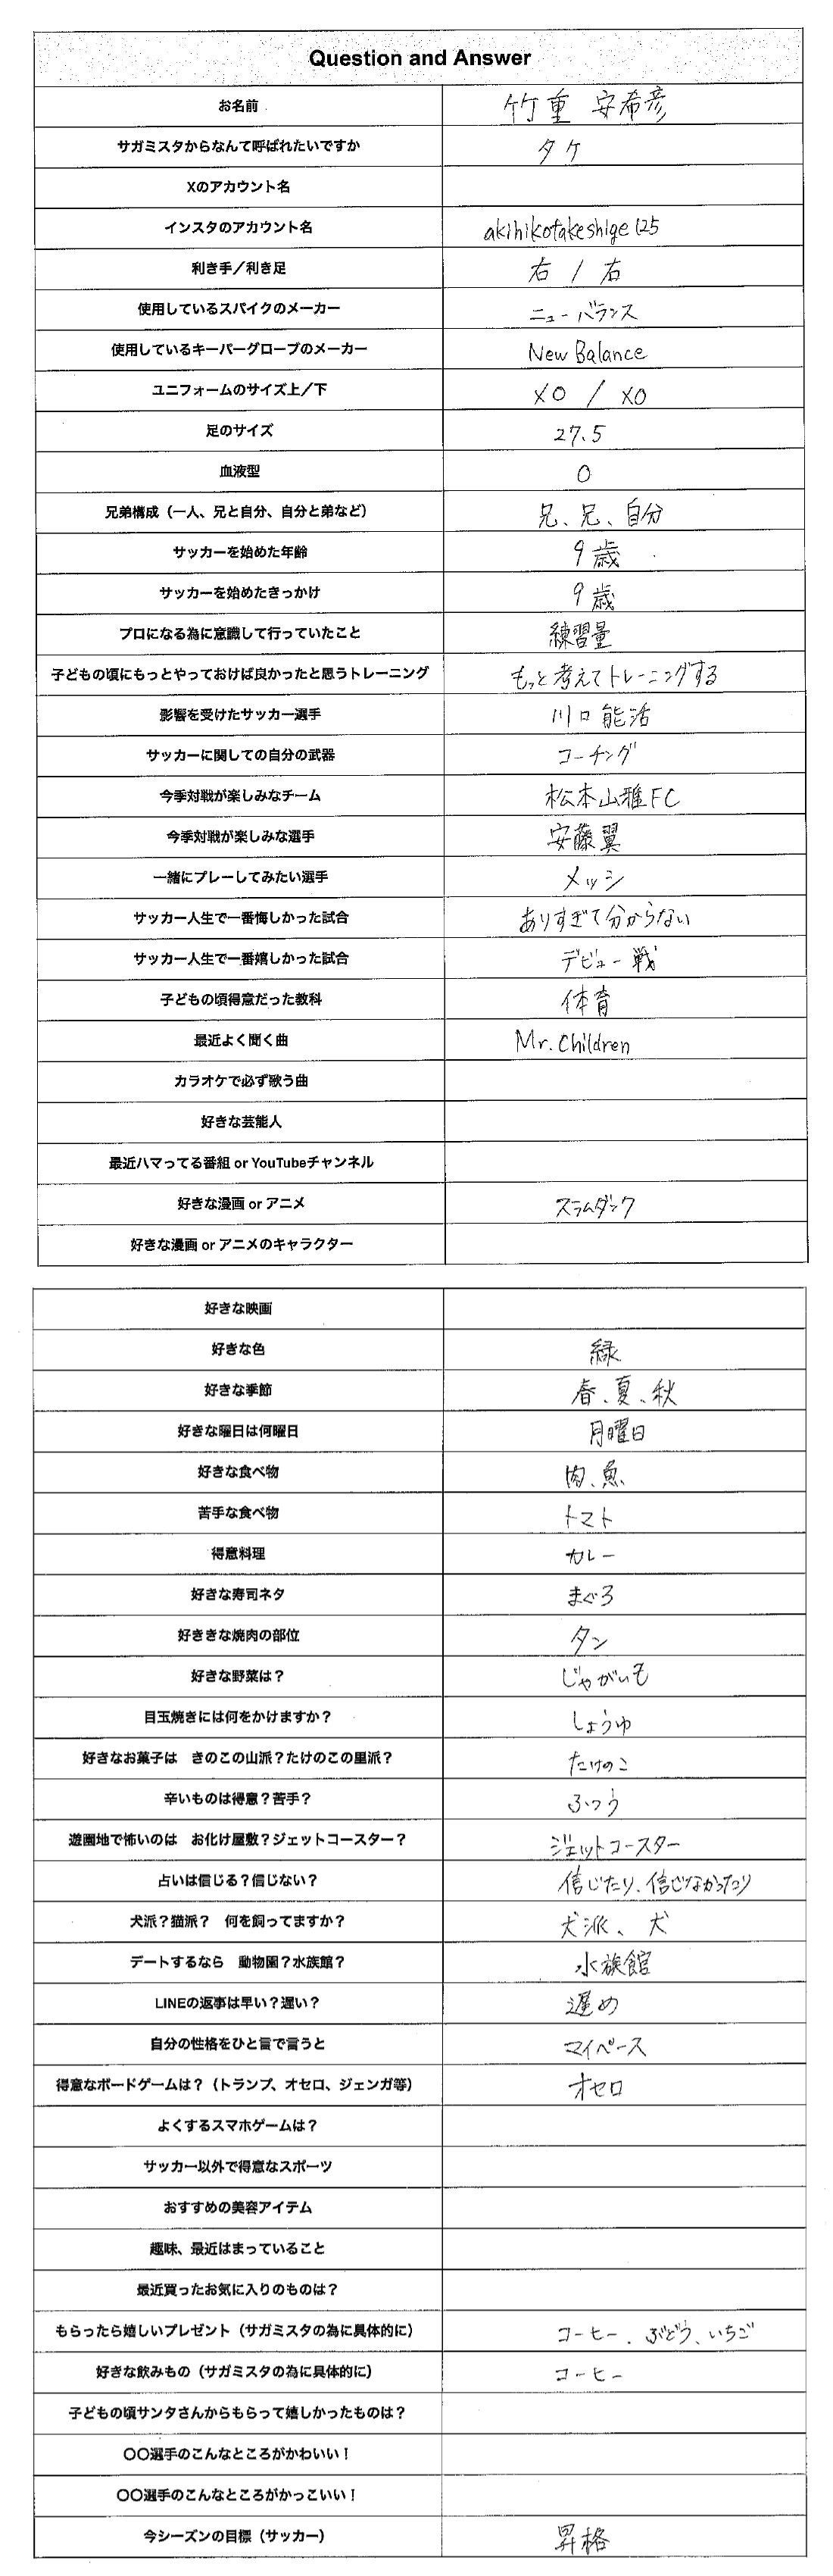 Question and Answer
お名前 竹重 安希彦
サガミスタからなんて呼ばれたいですか タケ
Xのアカウント名
インスタのアカウント名 akihikotakeshige125
利き手／利き足 右 / 右
使用しているスパイクのメーカー ニューバランス
使用しているキーパーグローブのメーカー New Balance
ユニフォームのサイズ上／下 XO / XO
足のサイズ 27.5
血液型 O
兄弟構成（一人、兄と自分、自分と弟など） 兄、兄、自分
サッカーを始めた年齢 9歳
サッカーを始めたきっかけ 9歳
プロになる為に意識して行っていたこと 練習量
子どもの頃にもっとやっておけば良かったと思うトレーニング もっと考えてトレーニングする
影響を受けたサッカー選手 川口能活
サッカーに関しての自分の武器 コーチング
今季対戦が楽しみなチーム 松本山雅FC
今季対戦が楽しみな選手 安藤翼
一緒にプレーしてみたい選手 メッシ
サッカー人生で一番悔しかった試合 ありすぎて分からない
サッカー人生で一番嬉しかった試合 デビュー戦
子どもの頃得意だった教科 体育
最近よく聞く曲 Mr.Children
カラオケで必ず歌う曲
好きな芸能人
最近ハマってる番組 or YouTubeチャンネル
好きな漫画 or アニメ スラムダンク
好きな漫画 or アニメのキャラクター
好きな映画
好きな色 緑
好きな季節 春、夏、秋
好きな曜日は何曜日 月曜日
好きな食べ物 肉、魚
苦手な食べ物 トマト
得意料理 カレー
好きな寿司ネタ まぐろ
好ききな焼肉の部位 タン
好きな野菜は？ じゃがいも
目玉焼きには何をかけますか？ しょうゆ
好きなお菓子は きのこの山派？たけのこの里派？ たけのこ
辛いものは得意？苦手？ ふつう
遊園地で怖いのは お化け屋敷？ジェットコースター？ ジェットコースター
占いは信じる？信じない？ 信じたり、信じなかったり
犬派？猫派？ 何を飼ってますか？ 犬派、犬
デートするなら 動物園？水族館？ 水族館
LINEの返事は早い？遅い？ 遅め
自分の性格をひと言で言うと マイペース
得意なボードゲームは？（トランプ、オセロ、ジェンガ等） オセロ
よくするスマホゲームは？
サッカー以外で得意なスポーツ
おすすめの美容アイテム
趣味、最近はまっていること
最近買ったお気に入りのものは？
もらったら嬉しいプレゼント（サガミスタの為に具体的に） コーヒー、ぶどう、いちご
好きな飲みもの（サガミスタの為に具体的に） コーヒー
子どもの頃サンタさんからもらって嬉しかったものは？
〇〇選手のこんなところがかわいい！
〇〇選手のこんなところがかっこいい！
今シーズンの目標（サッカー） 昇格